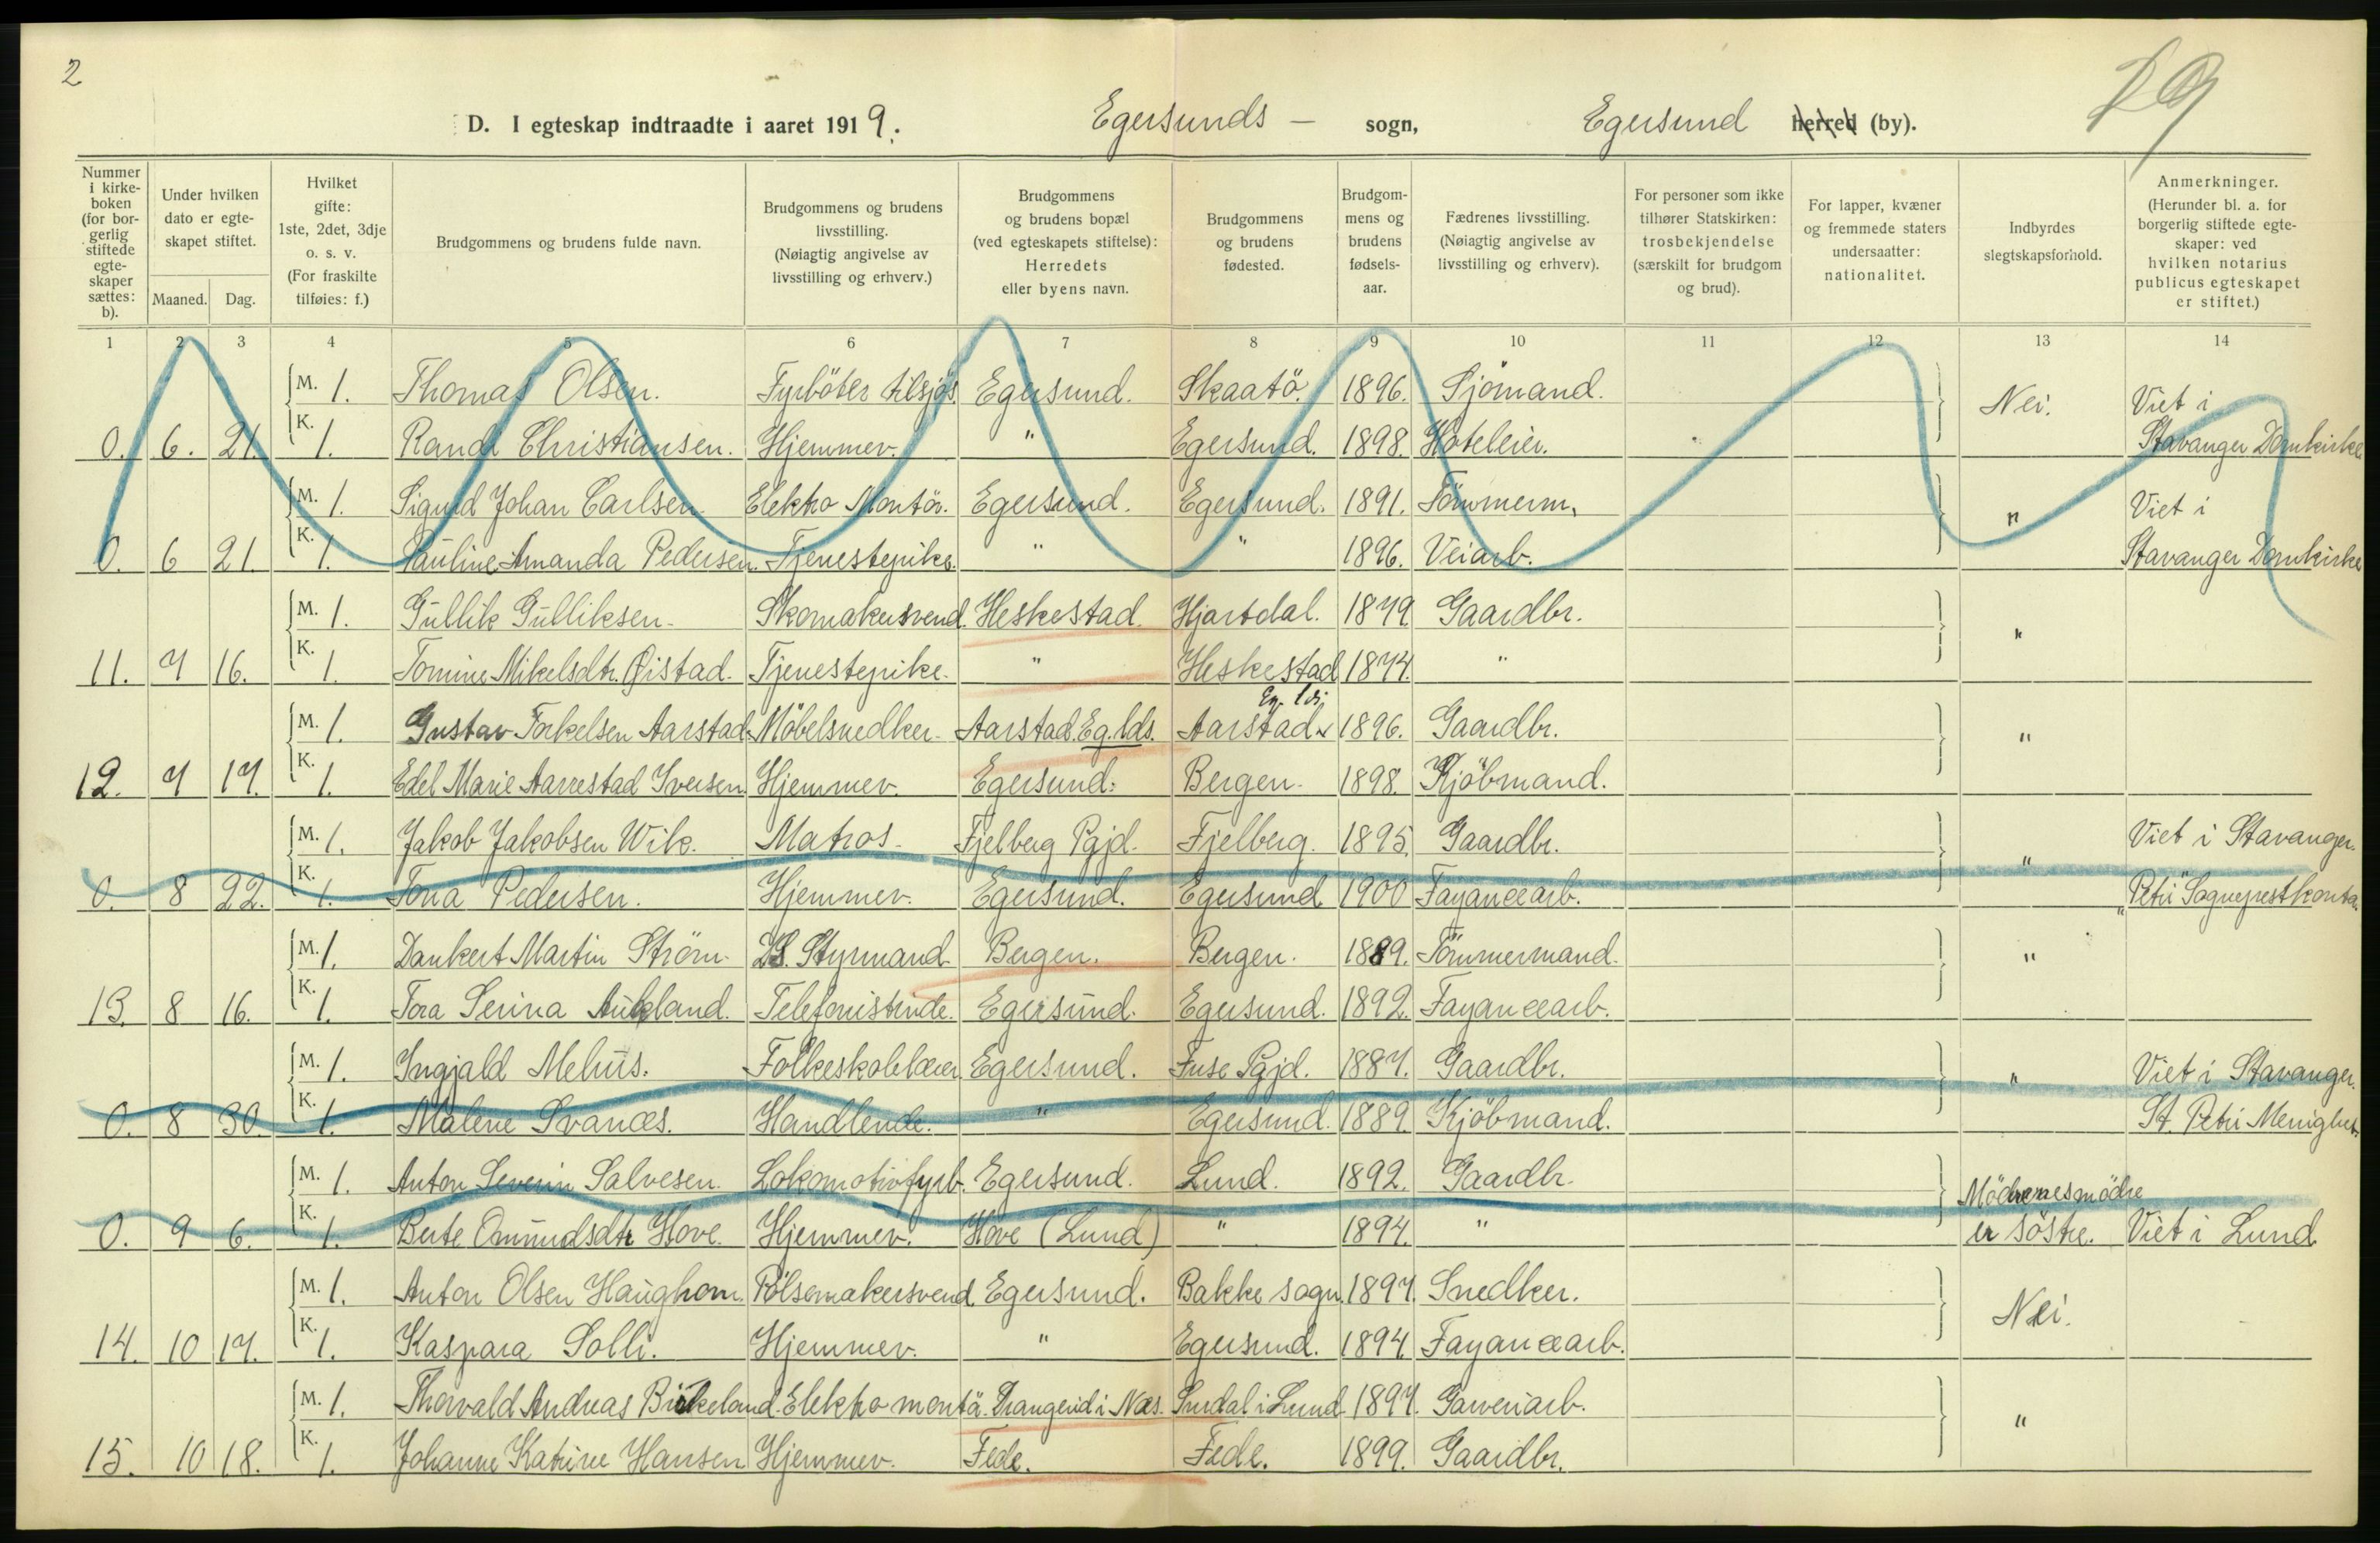 2
D. I egteskap indtraadte i aaret 1919.
Egersunds - sogn,
Egersund herred (by).
Nummer i kirkeboken (for borgerlig stiftede egteskaper sættes: b).
Under hvilken dato er egteskapet stiftet.
Maaned. Dag.
Hvilket gifte: 1ste, 2det, 3dje o. s. v. (For fraskilte tilføies: f.)
Brudgommens og brudens fulde navn.
Brudgommens og brudens livsstilling. (Nøiagtig angivelse av livsstilling og erhverv.)
Brudgommens og brudens bopæl (ved egteskapets stiftelse): Herredets eller byens navn.
Brudgommens og brudens fødested.
Brudgommens og brudens fødselsaar.
Fædrenes livsstilling. (Nøiagtig angivelse av livsstilling og erhverv).
For personer som ikke tilhører Statskirken: trosbekjendelse (særskilt for brudgom og brud).
For lapper, kvæner og fremmede staters undersaatter: nationalitet.
Indbyrdes slegtskapsforhold.
Anmerkninger. (Herunder bl. a. for borgerlig stiftede egteskaper: ved hvilken notarius publicus egteskapet er stiftet.)
1 2 3 4 5 6 7 8 9 10 11 12 13 14
M. 1. Thomas Olsen. Fyrböter tilsjös. Egersund. Skaatö. 1896. Sjömand. Nei. Viet i
0. 6. 21. K. 1. Randi Christiansen. Hjemmev. " Egersund. 1898. Hoteleier. Stavanger Domkirke
M. 1. Sigurd Johan Carlsen. Elektro Montör. Egersund. Egersund. 1891. Tömmerm. " Viet i
0. 6 21. K. 1. Pauline Amanda Pedersen. Tjenestepike. " " 1896. Veiarb. Stavanger Domkirke
M. 1. Gullik Gulliksen. Skomakersvend. Heskestad. Hjartdal. 1879 Gaardbr. "
11. 7 16. K. 1. Tomine Mikelsdtr. Øistad. Tjenestepike. " Heskestad 1874. "
Eg. lds.
M. 1. Gustav Torkelsen Aarstad. Möbelsnedker. Aarstad. Eg. lds. Aarstad 1896. Gaardbr. "
12. 7 17. K. 1. Edel Marie Aarrestad Iversen. Hjemmev. Egersund. Bergen. 1898. Kjöbmand.
M. 1. Jakob Jakobsen Wik. Matros. Fjelberg Pgjd. Fjelberg. 1895. Gaardbr. " Viet i Stavanger.
0. 8 22. K. 1. Tona Pedersen. Hjemmev. Egersund. Egersund 1900 Fayancearb. "Petri" Sogneprestkontor
M. 1. Dankert Martin Ström. Styrmand Bergen. Bergen. 1889. Tömmermand. "
13. 8 16. K. 1. Tora Serina Aukland. Telefonistinde. Egersund. Egersund. 1892. Fayancearb.
M. 1. Ingjald Mehus. Folkeskolelærer. Egersund. Fuse Pgjd. 1887. Gaardbr. " Viet i Stavanger.
0. 8 30. K. 1. Malene Svanæs. Handlende. " Egersund. 1889. Kjöbmand. St. Petri Menighet.
M. 1. Anton Severin Salvesen. Lokomotivfyrb. Egersund. Lund. 1892. Gaardbr. Mödrenesmödre
0. 9 6. K. 1. Berte Omundsdtr Hove. Hjemmev. Hove (Lund) " 1894. " er söstre. Viet i Lund
M. 1. Anton Olsen Haughom. Pölsemakersvend. Egersund. Bakke sogn. 1897. Snedker. Nei.
14. 10 17. K. 1. Kaspara Solli. Hjemmev. " Egersund. 1894. Fayancearb.
M. 1. Thorvald Andreas Birkeland. Elektromontör. Drangeid i Næs. Surdal i Lund. 1897. Garveriarb. "
15. 10 18. K. 1. Johanne Katrine Hansen Hjemmev. Fede. Fede. 1899. Gaardbr.